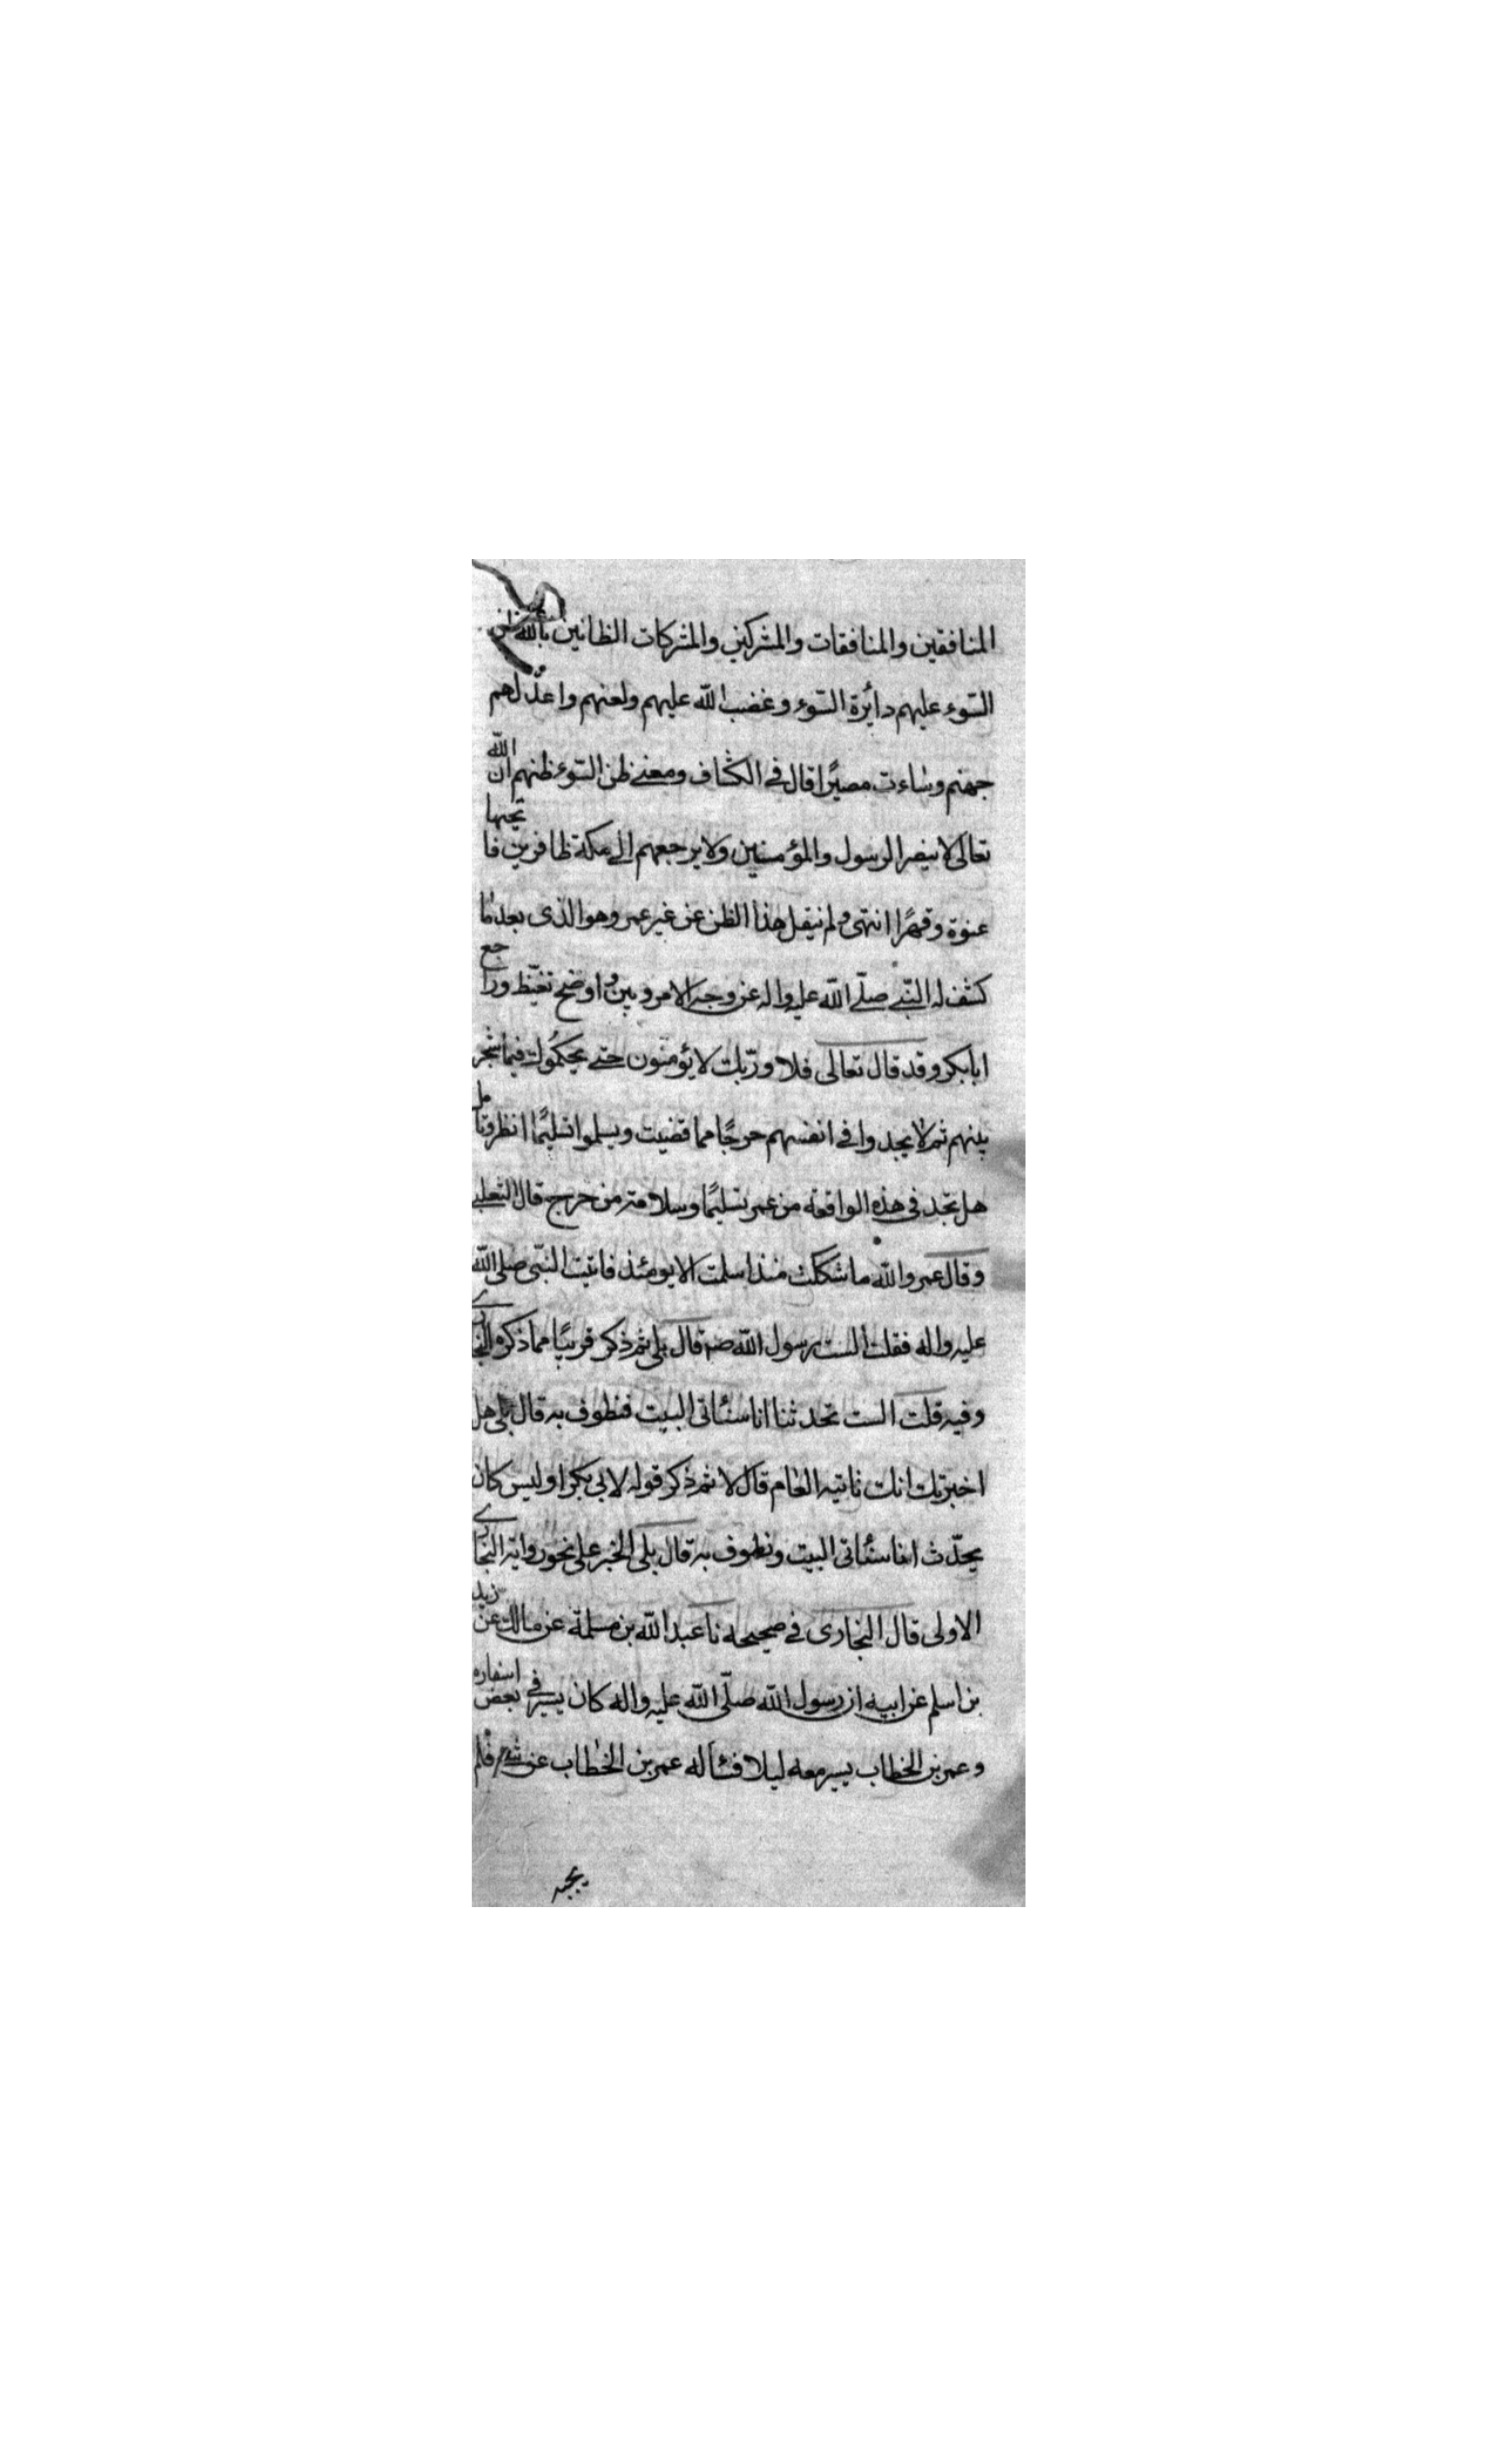 المنافقين والمنافقات والمشركين والمشركات الظانين بالله ظن
السّوء عليهم دائرة السّوء وغضب الله عليهم ولعنهم واعدّ لهم
جهنم وساءت مصيرًا قال في الكشاف ومعنى ظن السّوء ظنهم ان الله
تعالى لا ينصر الرسول والمؤمنين ولا يرجعهم الى مكة ظافرين فاتحيها
عنوة وقهرًا انتهى ولم ينقل هذا الظن عن غير عمر وهو الذى بعد ما
كشف له النّبي صلّى الله عليه واله عن وجه الامر وبين واوضح تغيّظ وراجع
ابابكر وقد قال تعالى فلا وربّك لا يؤمنون حتى يحكموك فيما شجر
بينهم ثم لا يجدوا في انفسهم حرجًا مما قضيت ويسلموا تسليمًا انظر وتامل
هل تجد في هذه الواقعة من عمر تسليمًا وسلامة من حرج قال الثعلبي
وقال عمر والله ما شككت منذ اسلمت الا يومئذ فاتيت النبّى صلى الله
عليه واله فقلت ألست رسول الله صم قال بلى ثم ذكر قريبًا مما ذكره البخارى
وفيه قلت الست تحدثنا انا سنأتى البيت فنطوف به قال بلى هل
اخبرتك انك تاتيه العام قال لا ثم ذكر قوله لابي بكر اوليس كان
يحدّث اننا سنأتى البيت ونطوف به قال بلى الخبر على نحو رواية البخارى
الاولى قال البخارى في صحيحه نا عبد الله بن مسلمة عن مالك عن زيد
بن اسلم عن ابيه ان رسول الله صلّى الله عليه واله كان يسير في بعض اسفاره
وعمر بن الخطاب يسير معه ليلا فسأله عمر بن الخطاب عن شئ فلم
يجبه